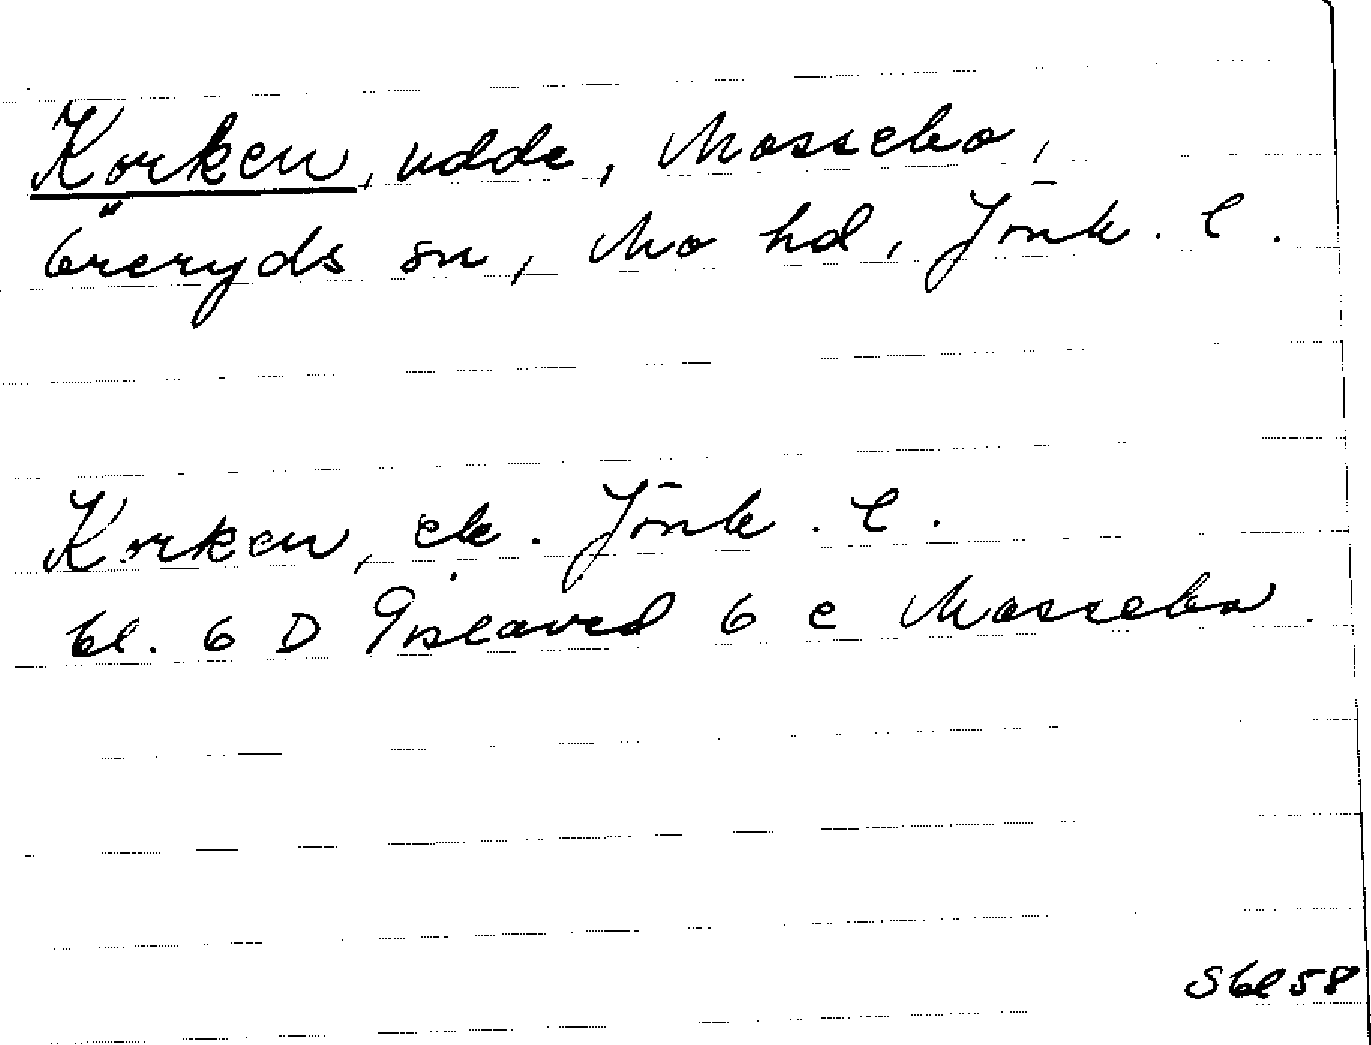 Korken, udde, Mossebo,
Öreryds sn, Mo hd, Jönk. l.
Korken, ek. Jönk. l.
bl. 6 D Gislaved 6 e Mossebo.
Sbl 58